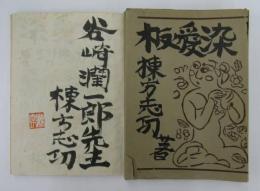 谷崎潤一郎先生
棟方志功
板愛染
棟方志功著